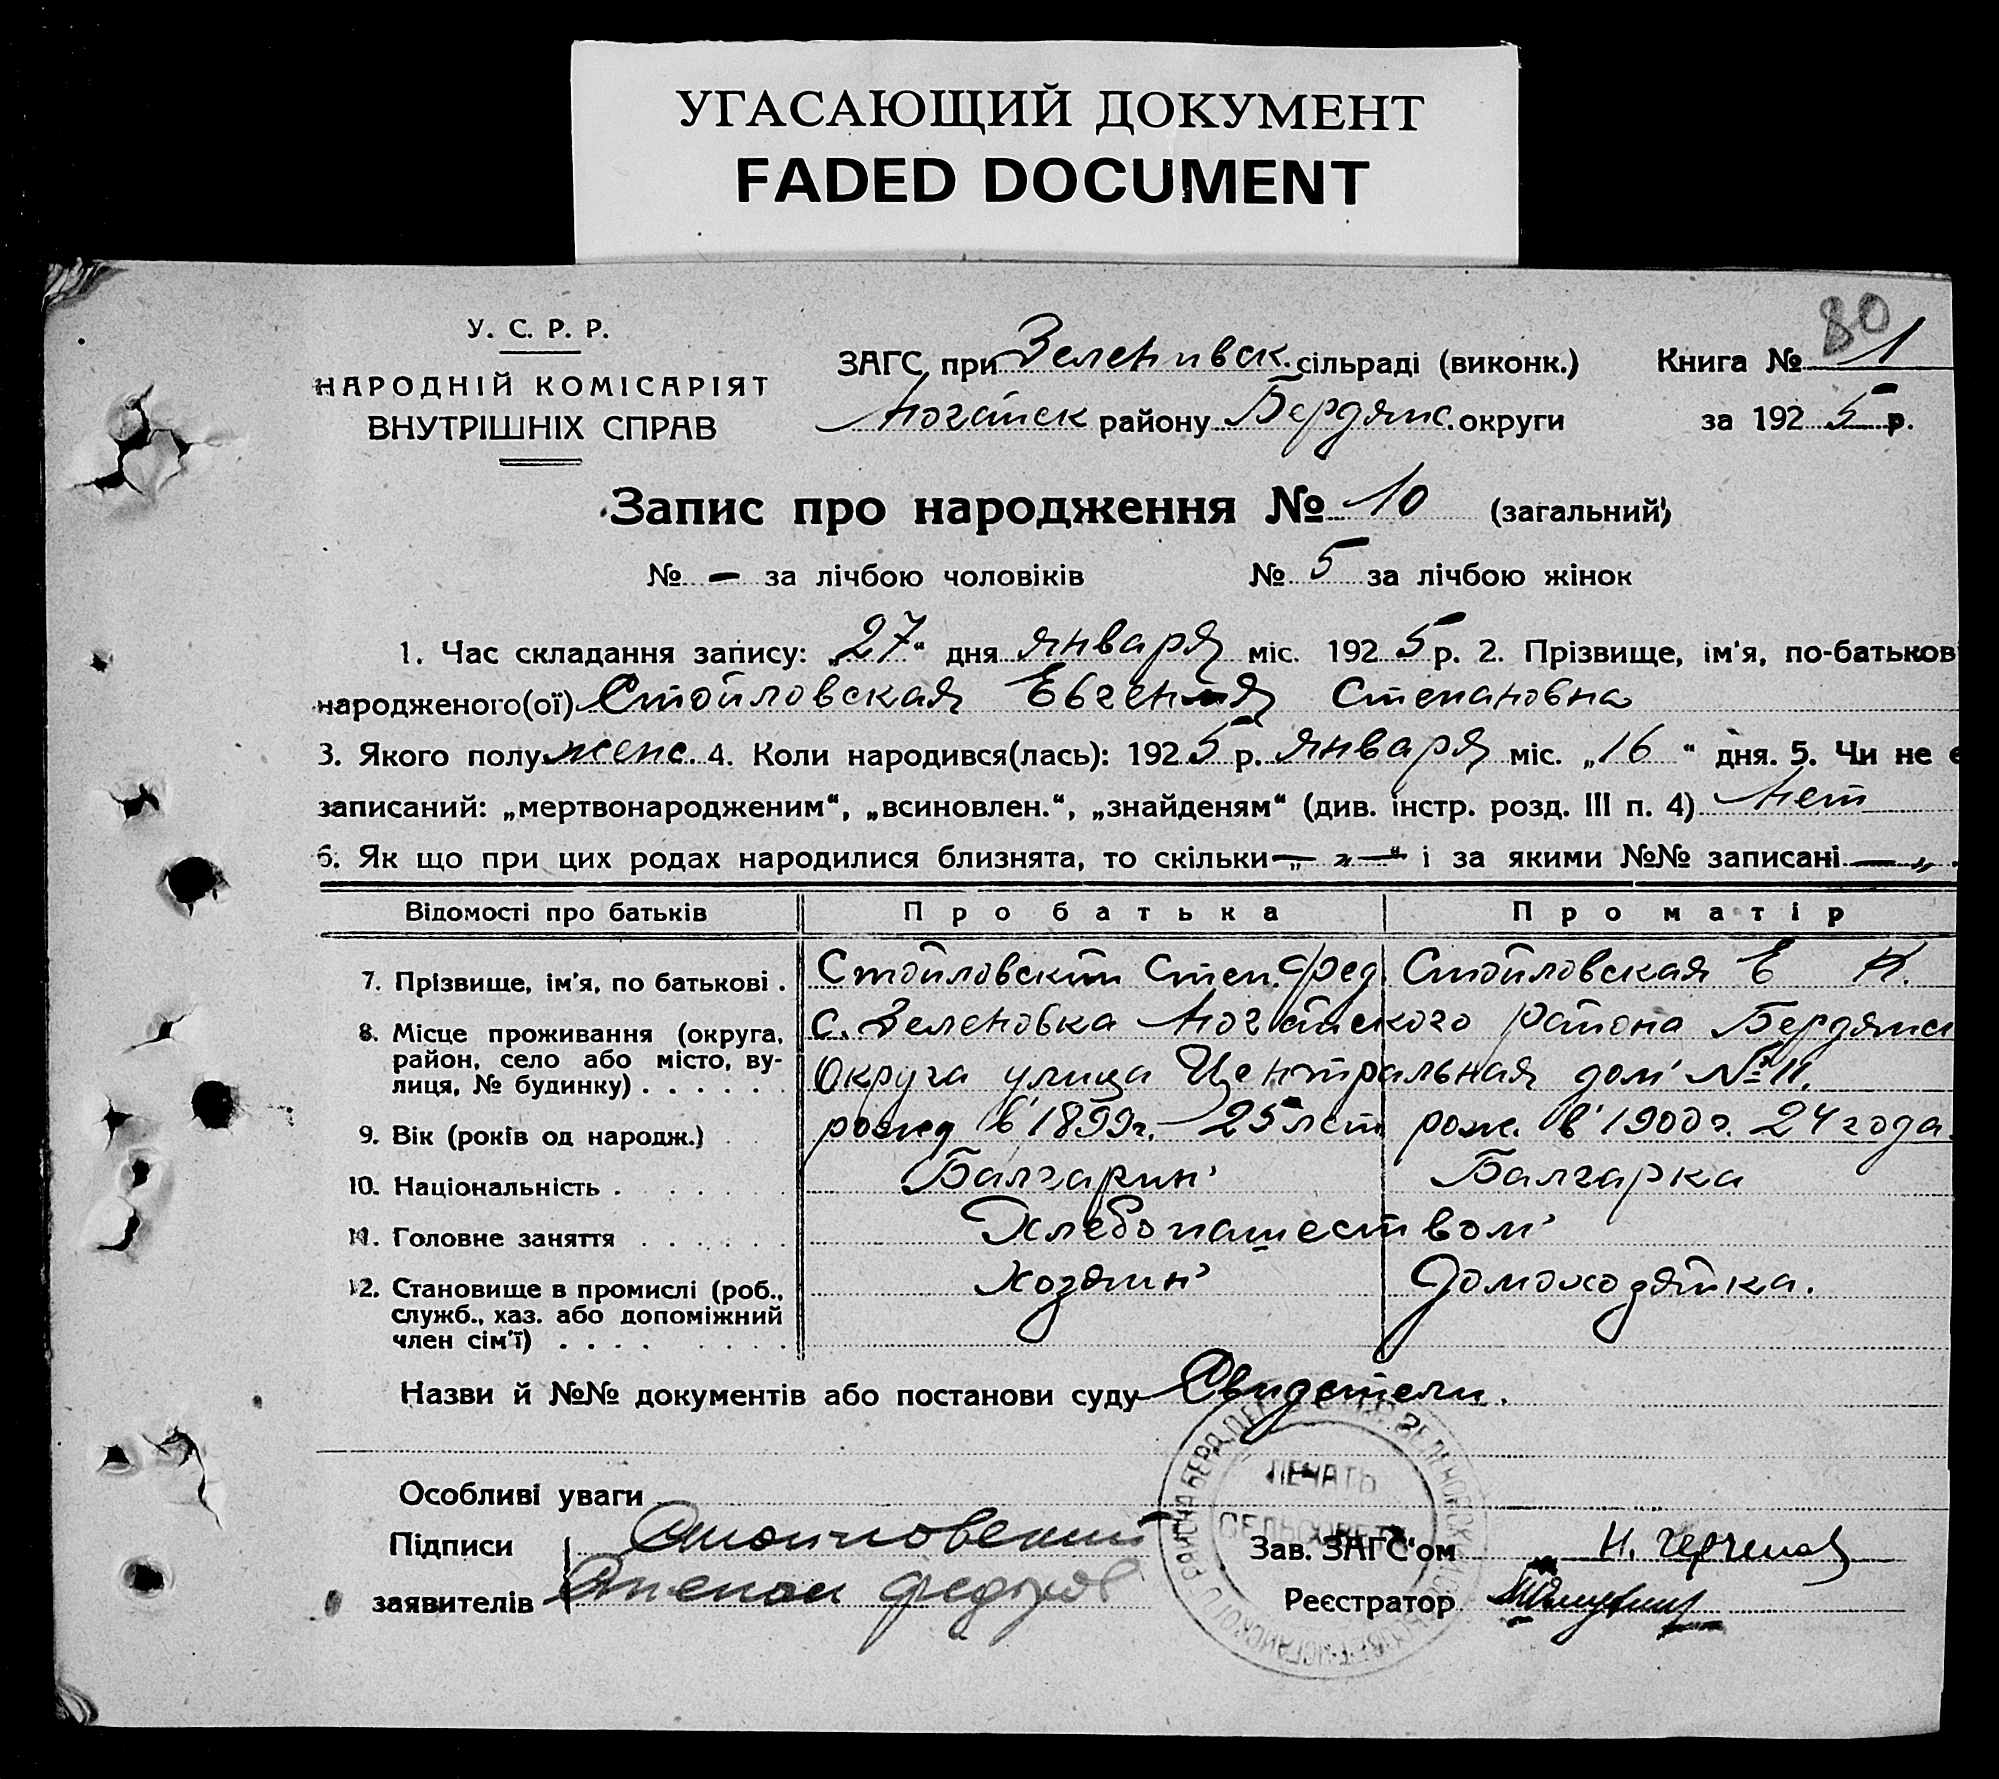 УГАСАЮЩИЙ ДОКУМЕНТ
FADED DOCUMENT
80
У. С. Р. Р.
НАРОДНІЙ КОМІСАРІЯТ
ВНУТРІШНІХ СПРАВ
ЗАГС при Зеленивск. сільраді (виконк.) Книга № 1
Ногайск району Бердянс. округи за 1925 р.
Запис про народження № 10 (загальний)
№ — за лічбою чоловіків № 5 за лічбою жінок
1. Час складання запису: „27“ дня января міс. 1925 р. 2. Прізвище, ім'я, по-батьков
народженого(ої) Стойловская Евгения Степановна
3. Якого полу женс. 4. Коли народився(лась): 1925 р. января міс. „16“ дня. 5. Чи не є
записаний: „мертвонародженим“, „всиновлен.“, „знайденям“ (див. інстр. розд. III п. 4) Нет
6. Як що при цих родах народилися близнята, то скільки — „ — “ і за якими №№ записані — „ .
Відомості про батьків Про батька Про матір
7. Прізвище, ім'я, по батькові . Стойловский Степ. Фед Стойловская Е Н.
8. Місце проживання (округа, с. Зеленовка Ногайского района Бердянск
район, село або місто, ву-
лиця, № будинку) . . . . . . Округа улица Центральная дом № 11.
9. Вік (років од народж.) рожд в 1899г. 25 лет рож. в 1900г. 24 года.
10. Національність . . . . . Балгарин Балгарка
11. Головне заняття . . . . . . Хлебопашеством
12. Становище в промислі (роб., Хозяин Домохозяйка.
служб., хаз. або допоміжний
член сім'ї) . . . . . . . .
Назви й №№ документів або постанови суду Свидетели.
Особливі уваги
ПЕЧАТЬ
СЕЛЬСОВЕТА
Підписи Стойловский Зав. ЗАГС'ом
заявителів Степан Федоров Реєстратор